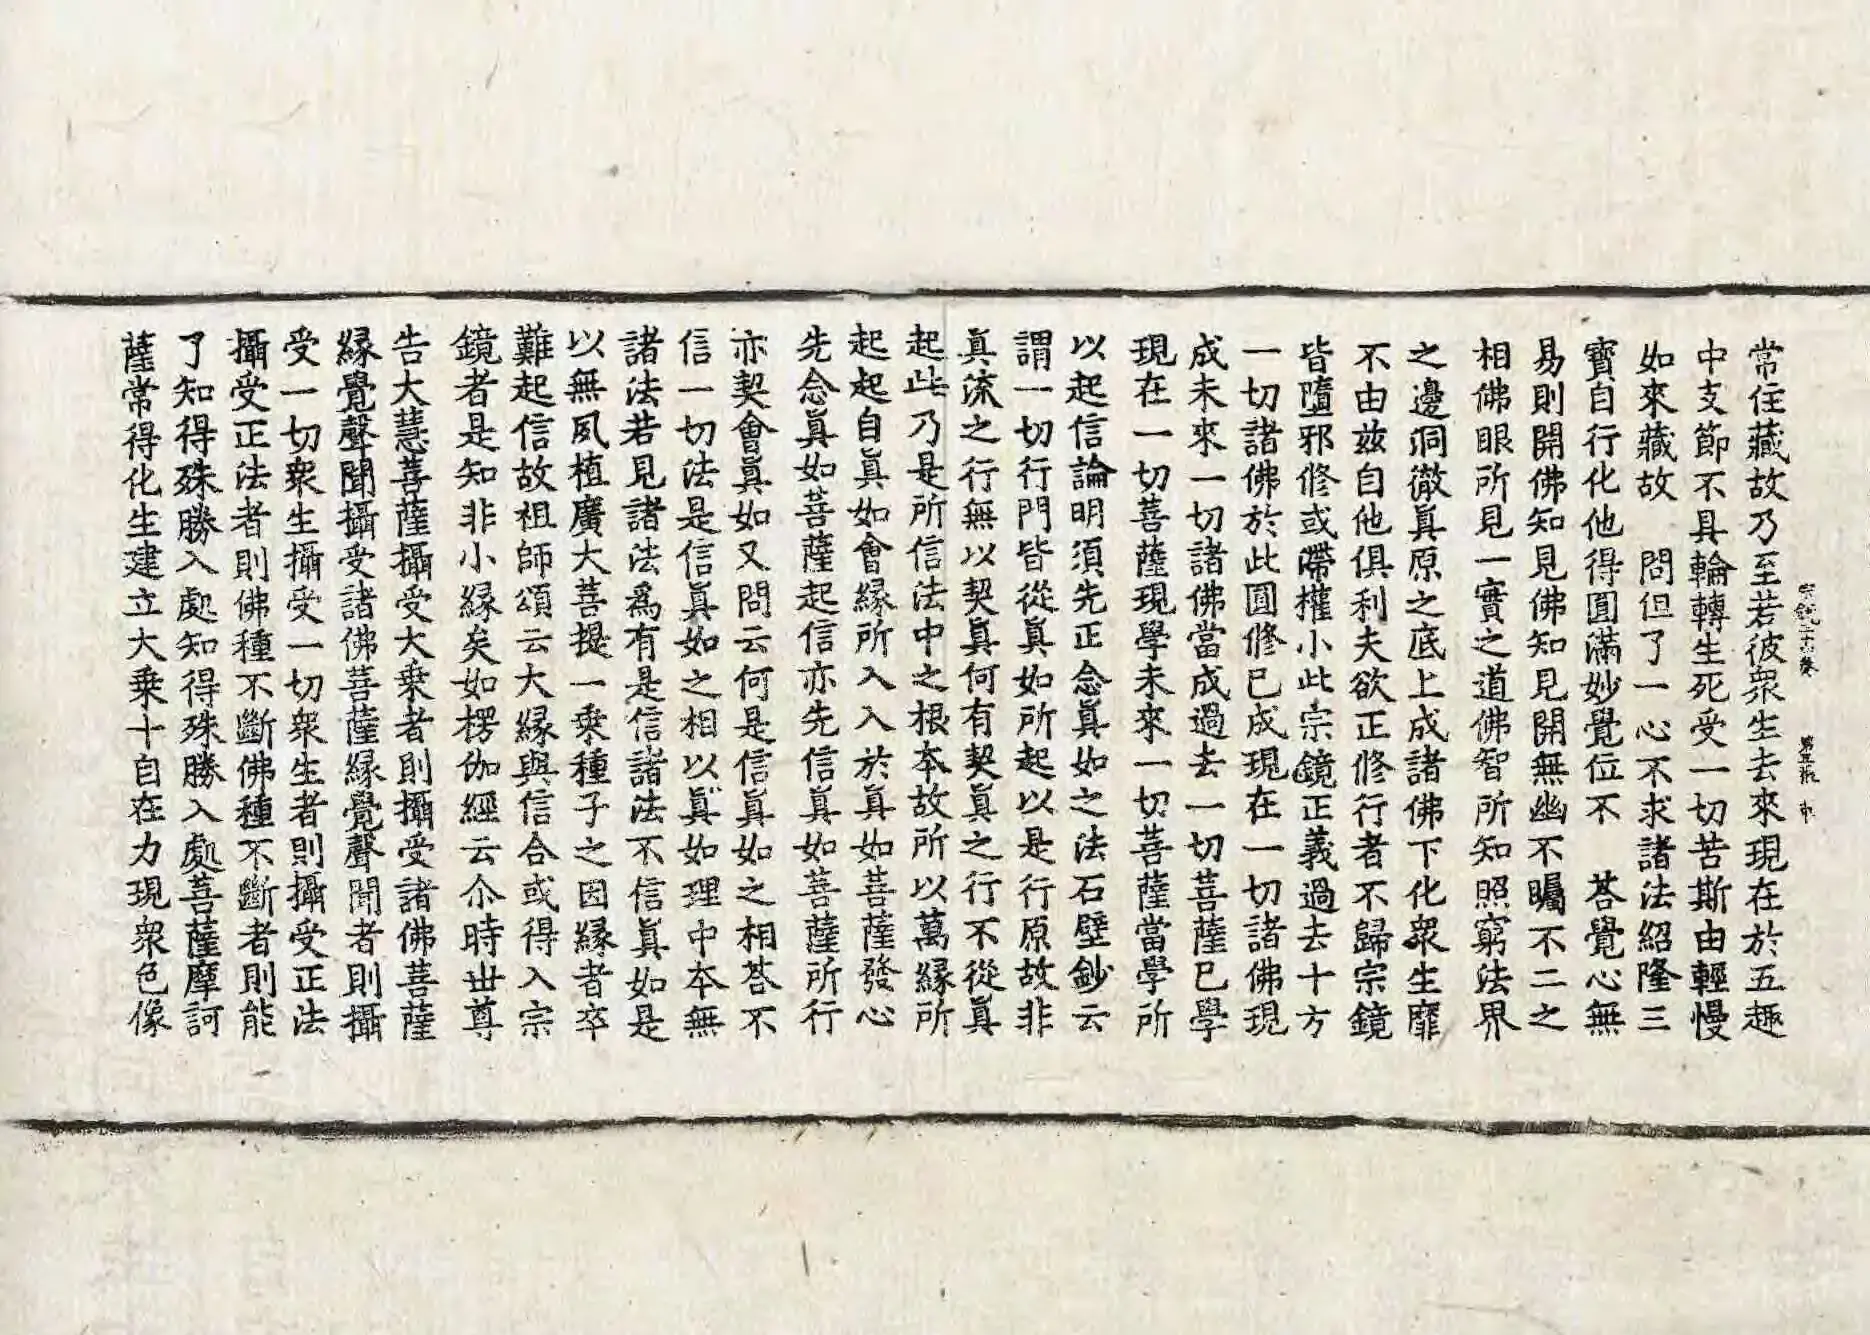 宗鏡二十六卷 第五張 市
常住藏故乃至若彼衆生去來現在於五趣
中支節不具輪轉生死受一切苦斯由輕慢
如來藏故 問但了一心不求諸法紹隆三
寶自行化他得圓滿妙覺位不 荅覺心無
易則開佛知見見佛知見開無幽不矚不二之
相佛眼所見一實之道佛智所知照窮法界
之邊洞徹眞原之底上成諸佛下化衆生靡
不由兹自他俱利夫欲正修行者不歸宗鏡
皆墮邪修或滯權小此宗鏡正義過去十方
一切諸佛於此圓修已成現在一切諸佛現
成未來一切諸佛當成過去一切菩薩已學
現在一切菩薩現學未來一切菩薩當學所
以起信論明須先正念眞如之法石壁鈔云
謂一切行門皆從眞如所起以是行原故非
眞流之行無以契眞何有契眞之行不從眞
起此乃是所信法中之根本故所以萬緣所
起起自眞如會緣所入入於眞如菩薩發心
先念眞如菩薩起信亦先信眞如菩薩所行
亦契會眞如又問云何是信眞如之相荅不
信一切法是信眞如之相以眞如理中本無
諸法若見諸法爲有是信諸法不信眞如是
以無夙植廣大菩提一乘種子之因緣者卒
難起信故祖師頌云大緣與信合或得入宗
鏡者是知非小緣矣如楞伽經云尒時世尊
告大慧菩薩攝受大乘者則攝受諸佛菩薩
緣覺聲聞攝受諸佛菩薩緣覺聲聞者則攝
受一切衆生攝受一切衆生者則攝受正法
攝受正法者則佛種不斷佛種不斷者則能
了知得殊勝入處知得殊勝入處菩薩摩訶
薩常得化生建立大乘十自在力現衆色像